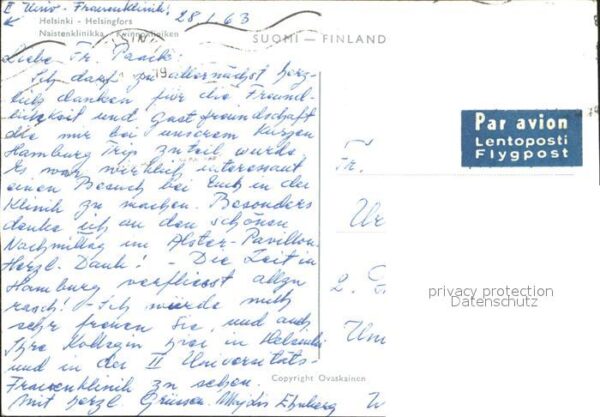 II Univ-Frauenklinik! 28/1 63
Helsinki - Helsingfors
Naistenklinikka - Kvinnokliniken
SUOMI — FINLAND
Liebe Fr.
19
Ich darf zu allernächst herz-
lich danken für die Freund-
lichkeit und Gastfreundschaft
die mir bei unserem kurzen
Hamburg Trip zuteil wurde.
Es war wirklich interessant
einen Besuch bei Euch in der
Klinik zu machen. Besonders
danke ich an den schönen
Nachmittag im Alster-Pavillon.
Herzl. Dank! - Die Zeit in
Hamburg verfliesst allzu
rasch! - Ich würde mich
sehr freuen Sie, und auch
Ihre Kollegin hier in Helsinki
und in der II Universitäts-
Frauenklinik zu sehen.
Mit herzl. Grüssen.
Par avion
Lentoposti
Flygpost
Fr.
2.
privacy protection
Datenschutz
Copyright Ovaskainen